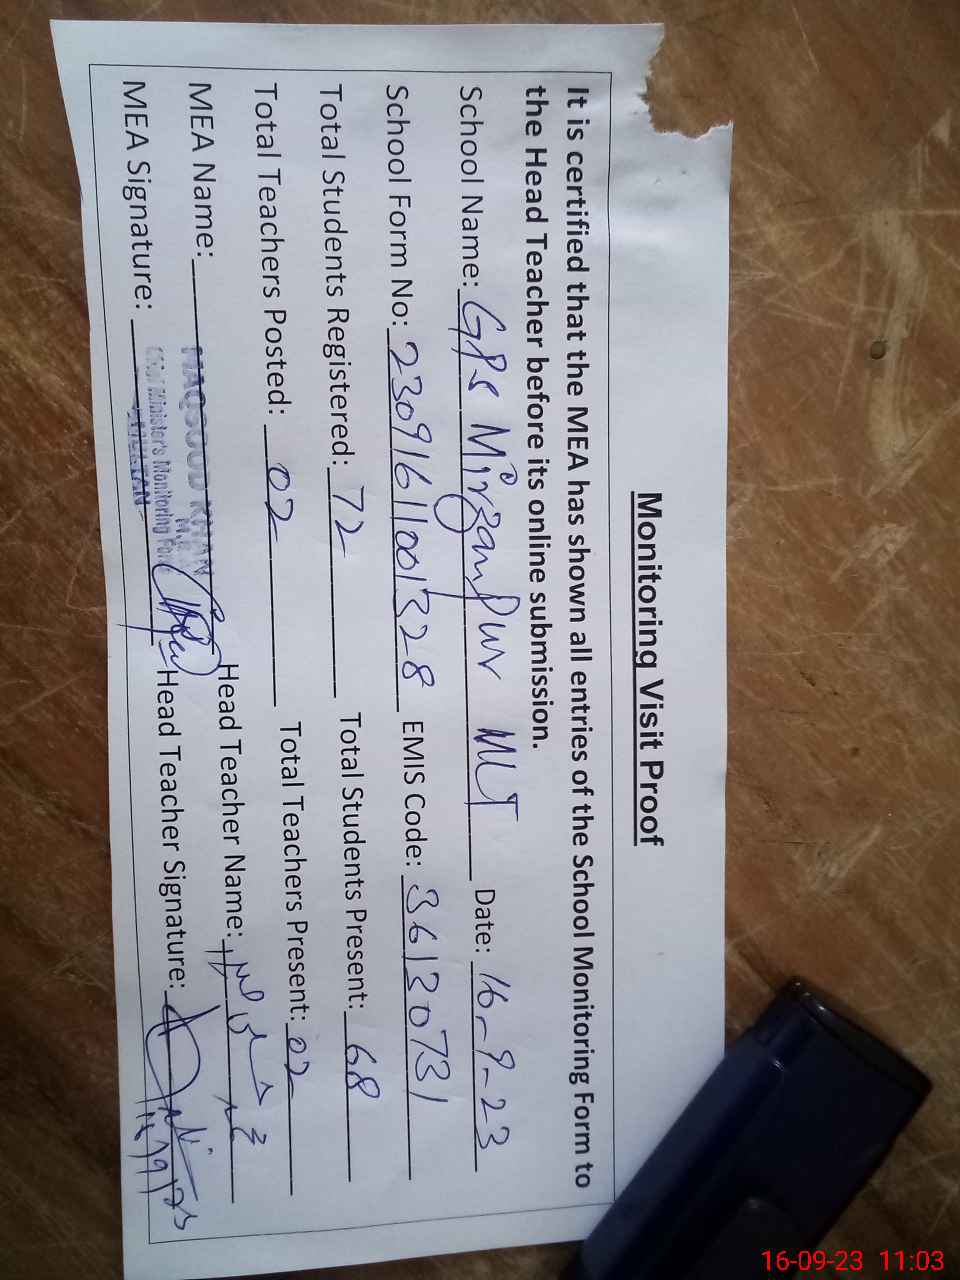 Monitoring Visit Proof
It is certified that the MEA has shown all entries of the School Monitoring Form to
the Head Teacher before its online submission.
School Name: GPS Mirzanpur MLT Date: 16-9-23
School Form No: 23091611001328 EMIS Code: 36130731
Total Students Registered: 72 Total Students Present: 68
Total Teachers Posted: 02 Total Teachers Present: 02
MEA Name: MAQSOOD KHAN Head Teacher Name:
MEA Signature: Chief Minister's Monitoring For MULTAN Head Teacher Signature:
16-09-23 11:03